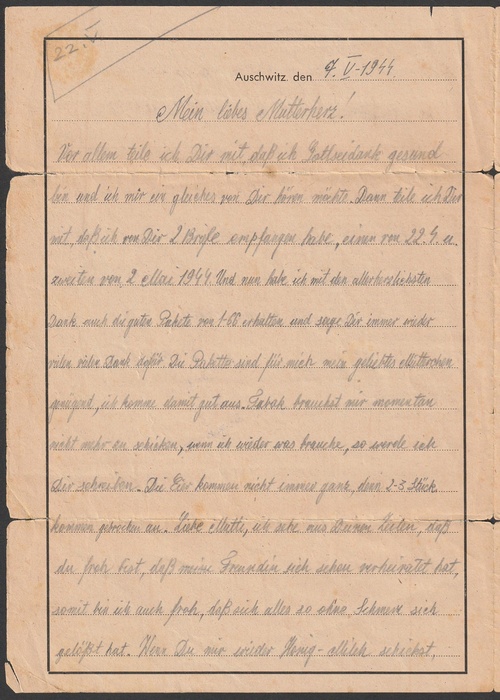 22.V.
Auschwitz, den 7. V-1944
Mein liebes Mutterherz!
Vor allem teile ich Dir mit daß ich Gottseidank gesund
bin und ich mir ein gleiches von Dir hören möchte. Dann teile ich Dir
mit daß ich von Dir 2 Briefe empfangen habe, einen von 22.4. u.
zweiten von 2 Mai 1944. Und nun habe ich mit den allerherzlichsten
Dank auch die guten Pakete von erhalten und sage Dir immer wieder
vielen vielen Dank dafür. Die Pakette sind für mich mein geliebtes Mütterchen
genügend, ich komme damit gut aus. Tabak brauchst mir momentan
nicht mehr zu schicken, wenn ich wieder was brauche, so werde ich
Dir schreiben. Die Eier kommen nicht immer ganz, denn 2-3 Stück
kommen gebrochen an. Liebe Mutti, ich sehe aus Deinen Zeilen, daß
du froh bist, daß meine Freundin sich schon verheiratet hat,
somit bin ich auch froh, daß sich alles so ohne Schmerz sich
gelößt hat. Wenn Du mir wieder Honig-Milch schickst,